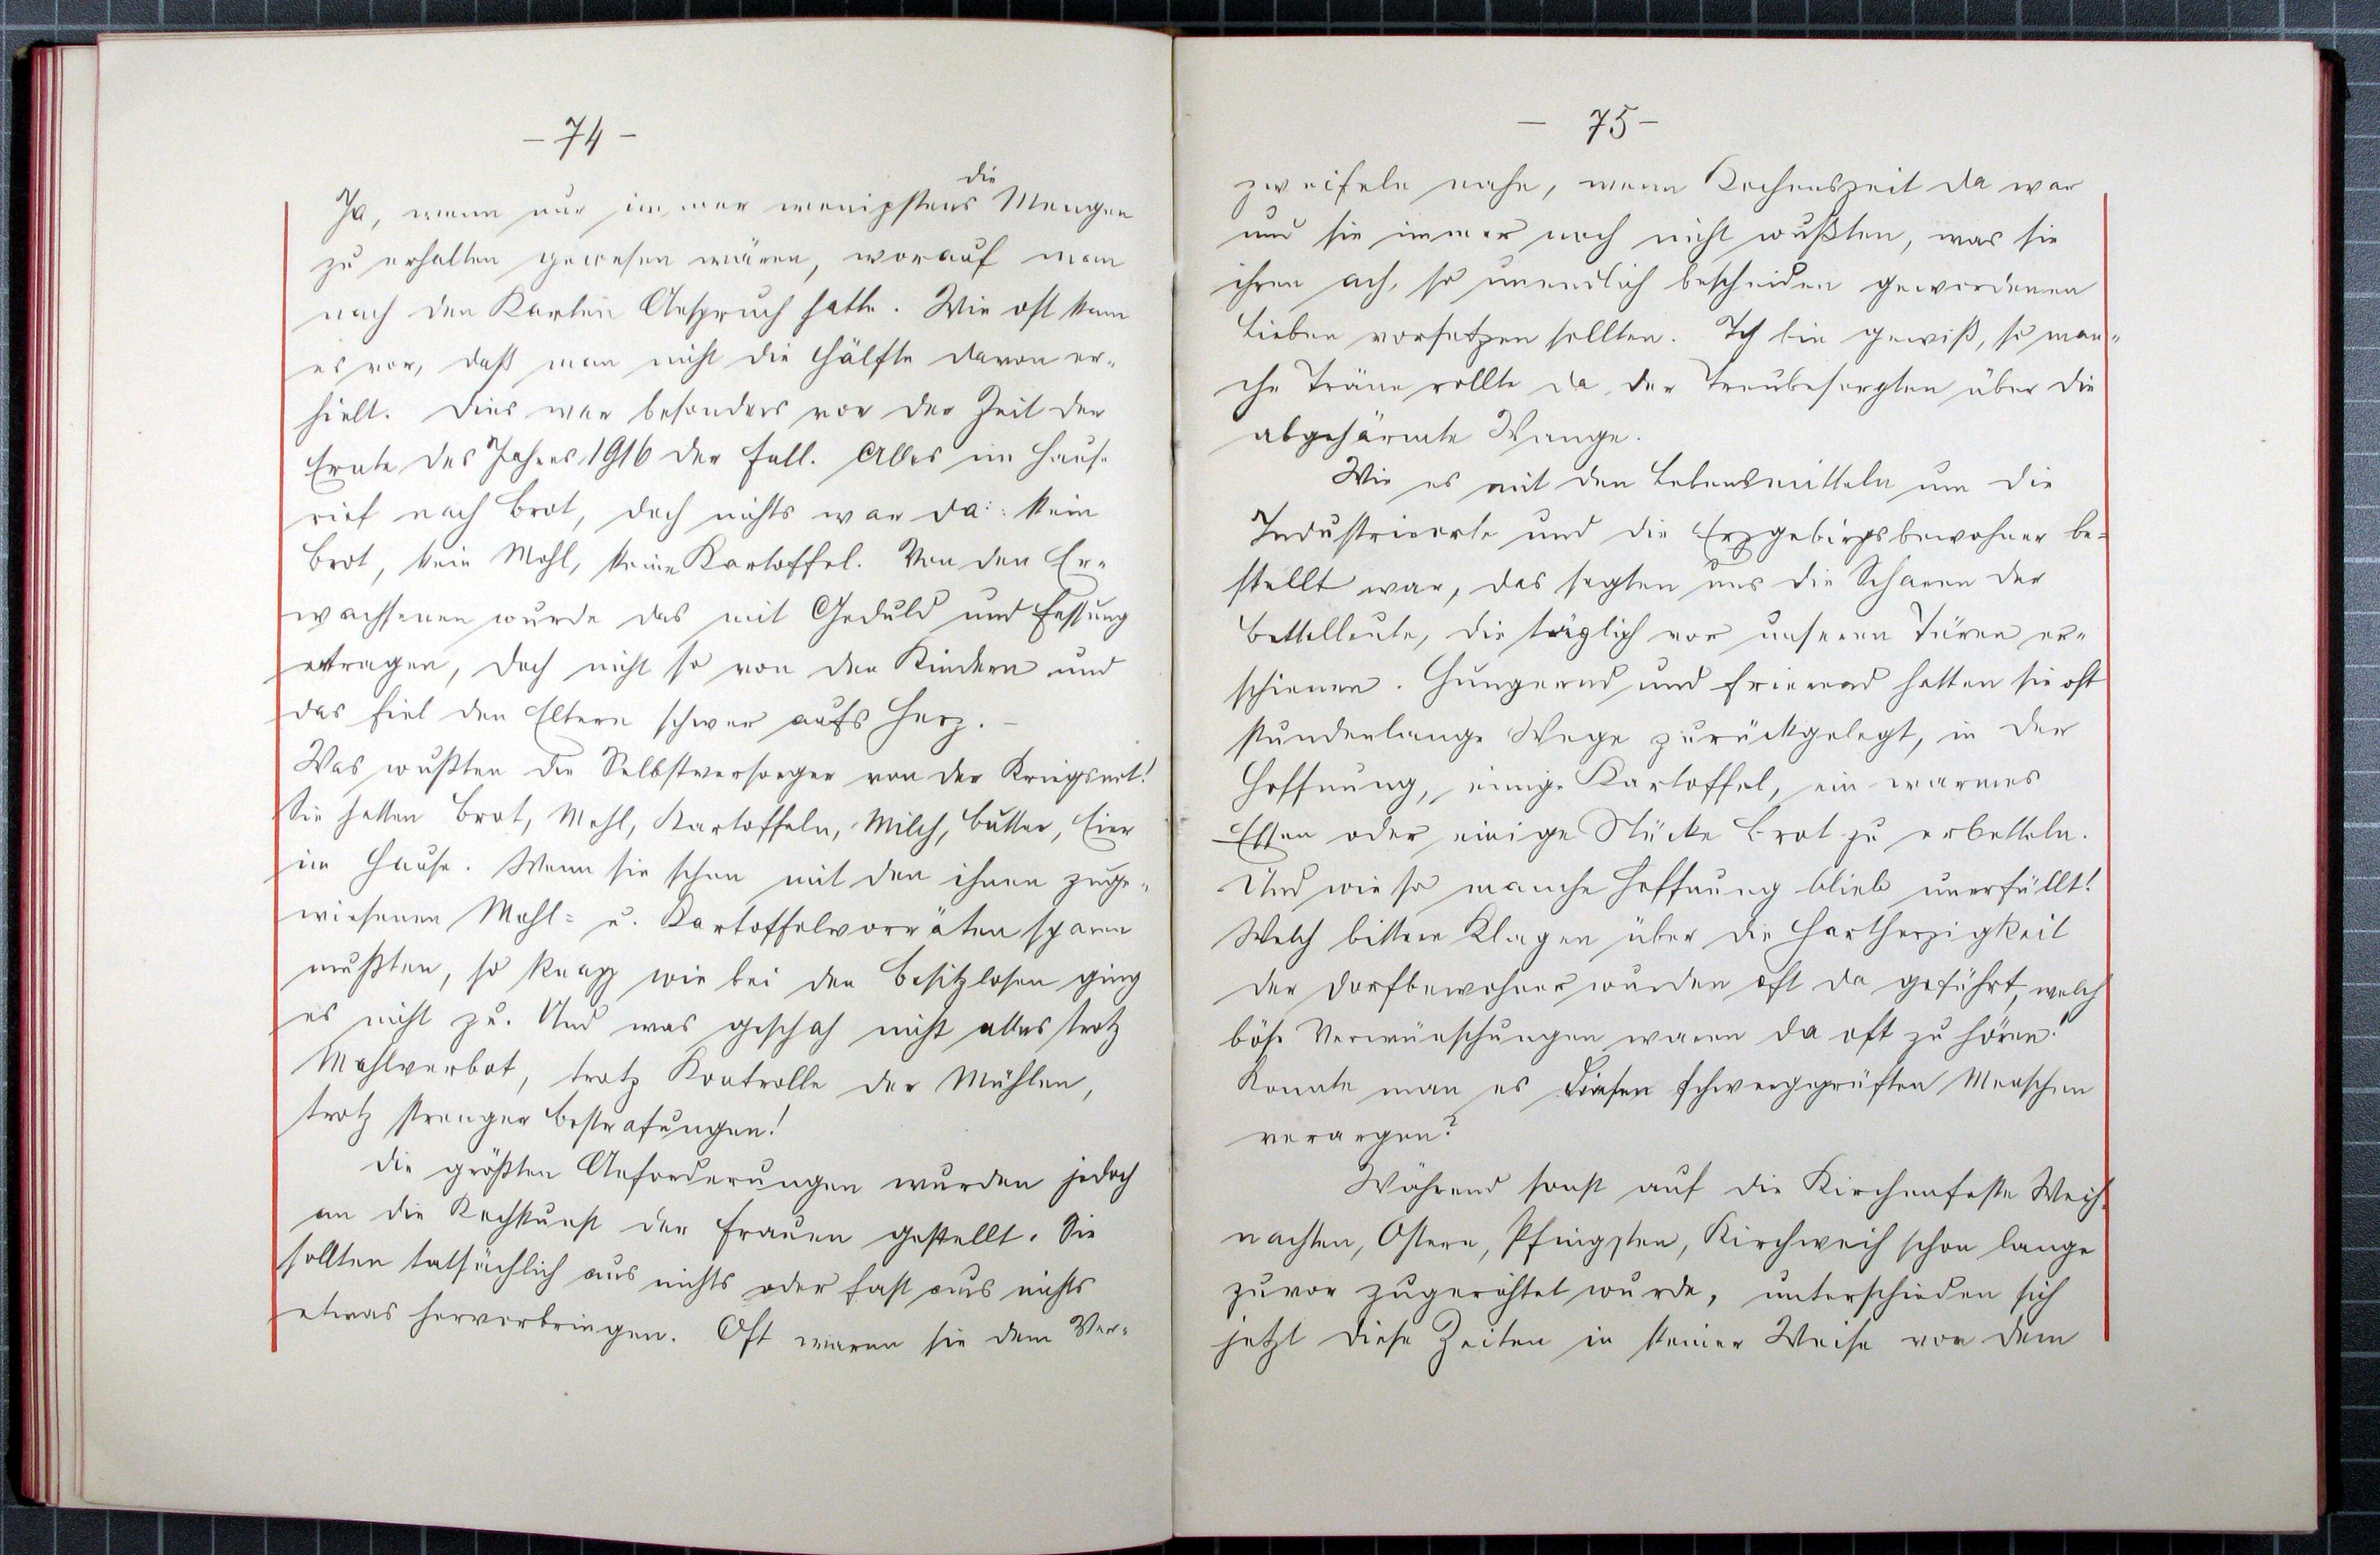 - 74 -
die
Ja, wenn nur immer wenigstens Mengen
zu erhalten gewesen wären, worauf man
nach den Karten Anspruch hatte. Wie oft kam
es vor, daß man nicht die Hälfte davon er-
hielt. Dies war besonders vor der Zeit der
Ernte des Jahres 1916 der Fall. Alles im Hause
rief nach Brot, doch nichts war da: kein
Brot, kein Mehl, keine Kartoffel. Von den Er-
wachsenen wurde das mit Geduld und Fassung
ertragen, doch nicht so von den Kindern und
das fiel den Eltern schwer aufs Herz. -
Was wußten die Selbstversorger von der Kriegsnot!
Sie hatten Brot, Mehl, Kartoffeln, Milch, Butter, Eier
im Hause. Wenn sie schon mit den ihnen zuge-
wiesenen Mehl- u. Kartoffelvorräten sparen
mußten, so knapp wie bei den Besitzlosen ging
es nicht zu. Und was geschah nicht alles trotz
Mahlverbot, trotz Kontrolle der Mühlen,
trotz strenger Bestrafungen!
Die größten Anforderungen wurden jedoch
an die Kochkunst der Frauen gestellt. Sie
sollten tatsächlich aus nichts oder fast aus nichts
etwas hervorbringen. Oft waren sie dem Ver-
- 75 -
zweifeln nahe, wenn Kochenszeit da war
und sie immer noch nicht wußten, was sie
ihren ach, so unendlich bescheiden gewordenen
Lieben vorsetzen sollten. Ich bin gewiß, so man-
che Träne rollte da der Treubesorgten über die
abgehärmte Wange.
Wie es mit den Lebensmitteln um die
Industrieorte und die Erzgebirgsbewohner be-
stellt war, das sagten uns die Scharen der
Bettelleute, die täglich vor unseren Türen er-
schienen. Hungernd und frierend hatten sie oft
stundenlange Wege zurückgelegt, in der
Hoffnung, einige Kartoffel, ein warmes
Essen oder einige Stücke Brot zu erbetteln.
Und wie so manche Hoffnung blieb unerfüllt!
Welch bittere Klagen über die Hartherzigkeit
der Dorfbewohner wurden oft da geführt, welch
böse Verwünschungen waren da oft zu hören!
Konnte man es diesen schwergeprüften Menschen
verargen?
Während sonst auf die Kirchenfeste Weih-
nachten, Ostern, Pfingsten, Kirchweih schon lange
zuvor zugerichtet wurde, unterschieden sich
jetzt diese Zeiten in keiner Weise von dem